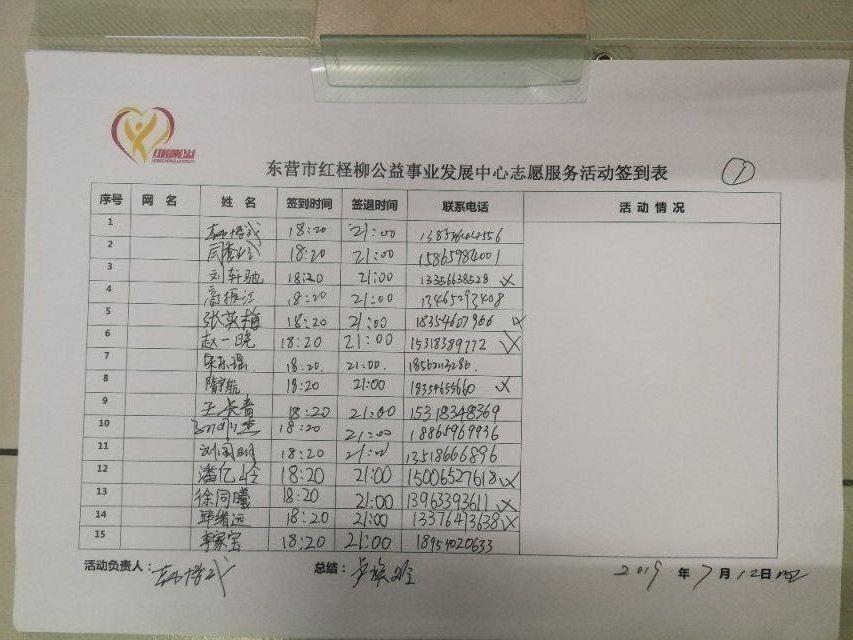 东营市红柽柳公益事业发展中心志愿服务活动签到表 ①
序号 网 名 姓 名 签到时间 签退时间 联系电话 活 动 情 况
1 18:20 21:00
2 18:20 21:00 15865984001
3 刘轩驰 18:20 21:00 13356638528 ×
4 高振江 18:20 21:00 13465293408
5 张英梅 18:20 21:00 18354607966 ×
6 赵一晓 18:20 21:00 15318389772 ×
7 18:20. 21:00.
8 隋宇航 18:20 21:00 18354655660 ×
9 王长青 18:20 21:00 15318348369
10 18:20 21:00 18865969936
11 18:20 21:00 13518666896
12 潘亿 18:20 21:00 15006527618 ×
13 徐同曦 18:20 21:00 13963393611 ×
14 远 18:20 21:00 13376413638 ×
15 李家宝 18:20 21:00 18954020633
活动负责人: 总结: 2019 年 7 月 12 日